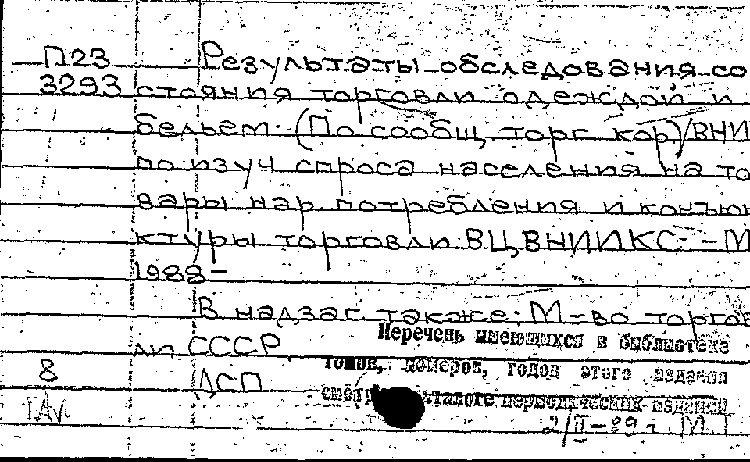 П23 Результаты обследования со
3293 стояния торговли одеждой и
бельем. (По сообщ. торг. кор)/ВНИ
по изуч. спроса населения на то
вары нар. потребления и конъюн
ктуры торговли. ВЦ, ВНИИКС. - М
1988 -
В надзаг. также: М-во торгов
ли СССР
Перечень имеющихся в библиотеке
томов, номеров, годов этого издания
8 ДСП
смотри в каталоге периодических изданий
2/II-89 г. М.Т